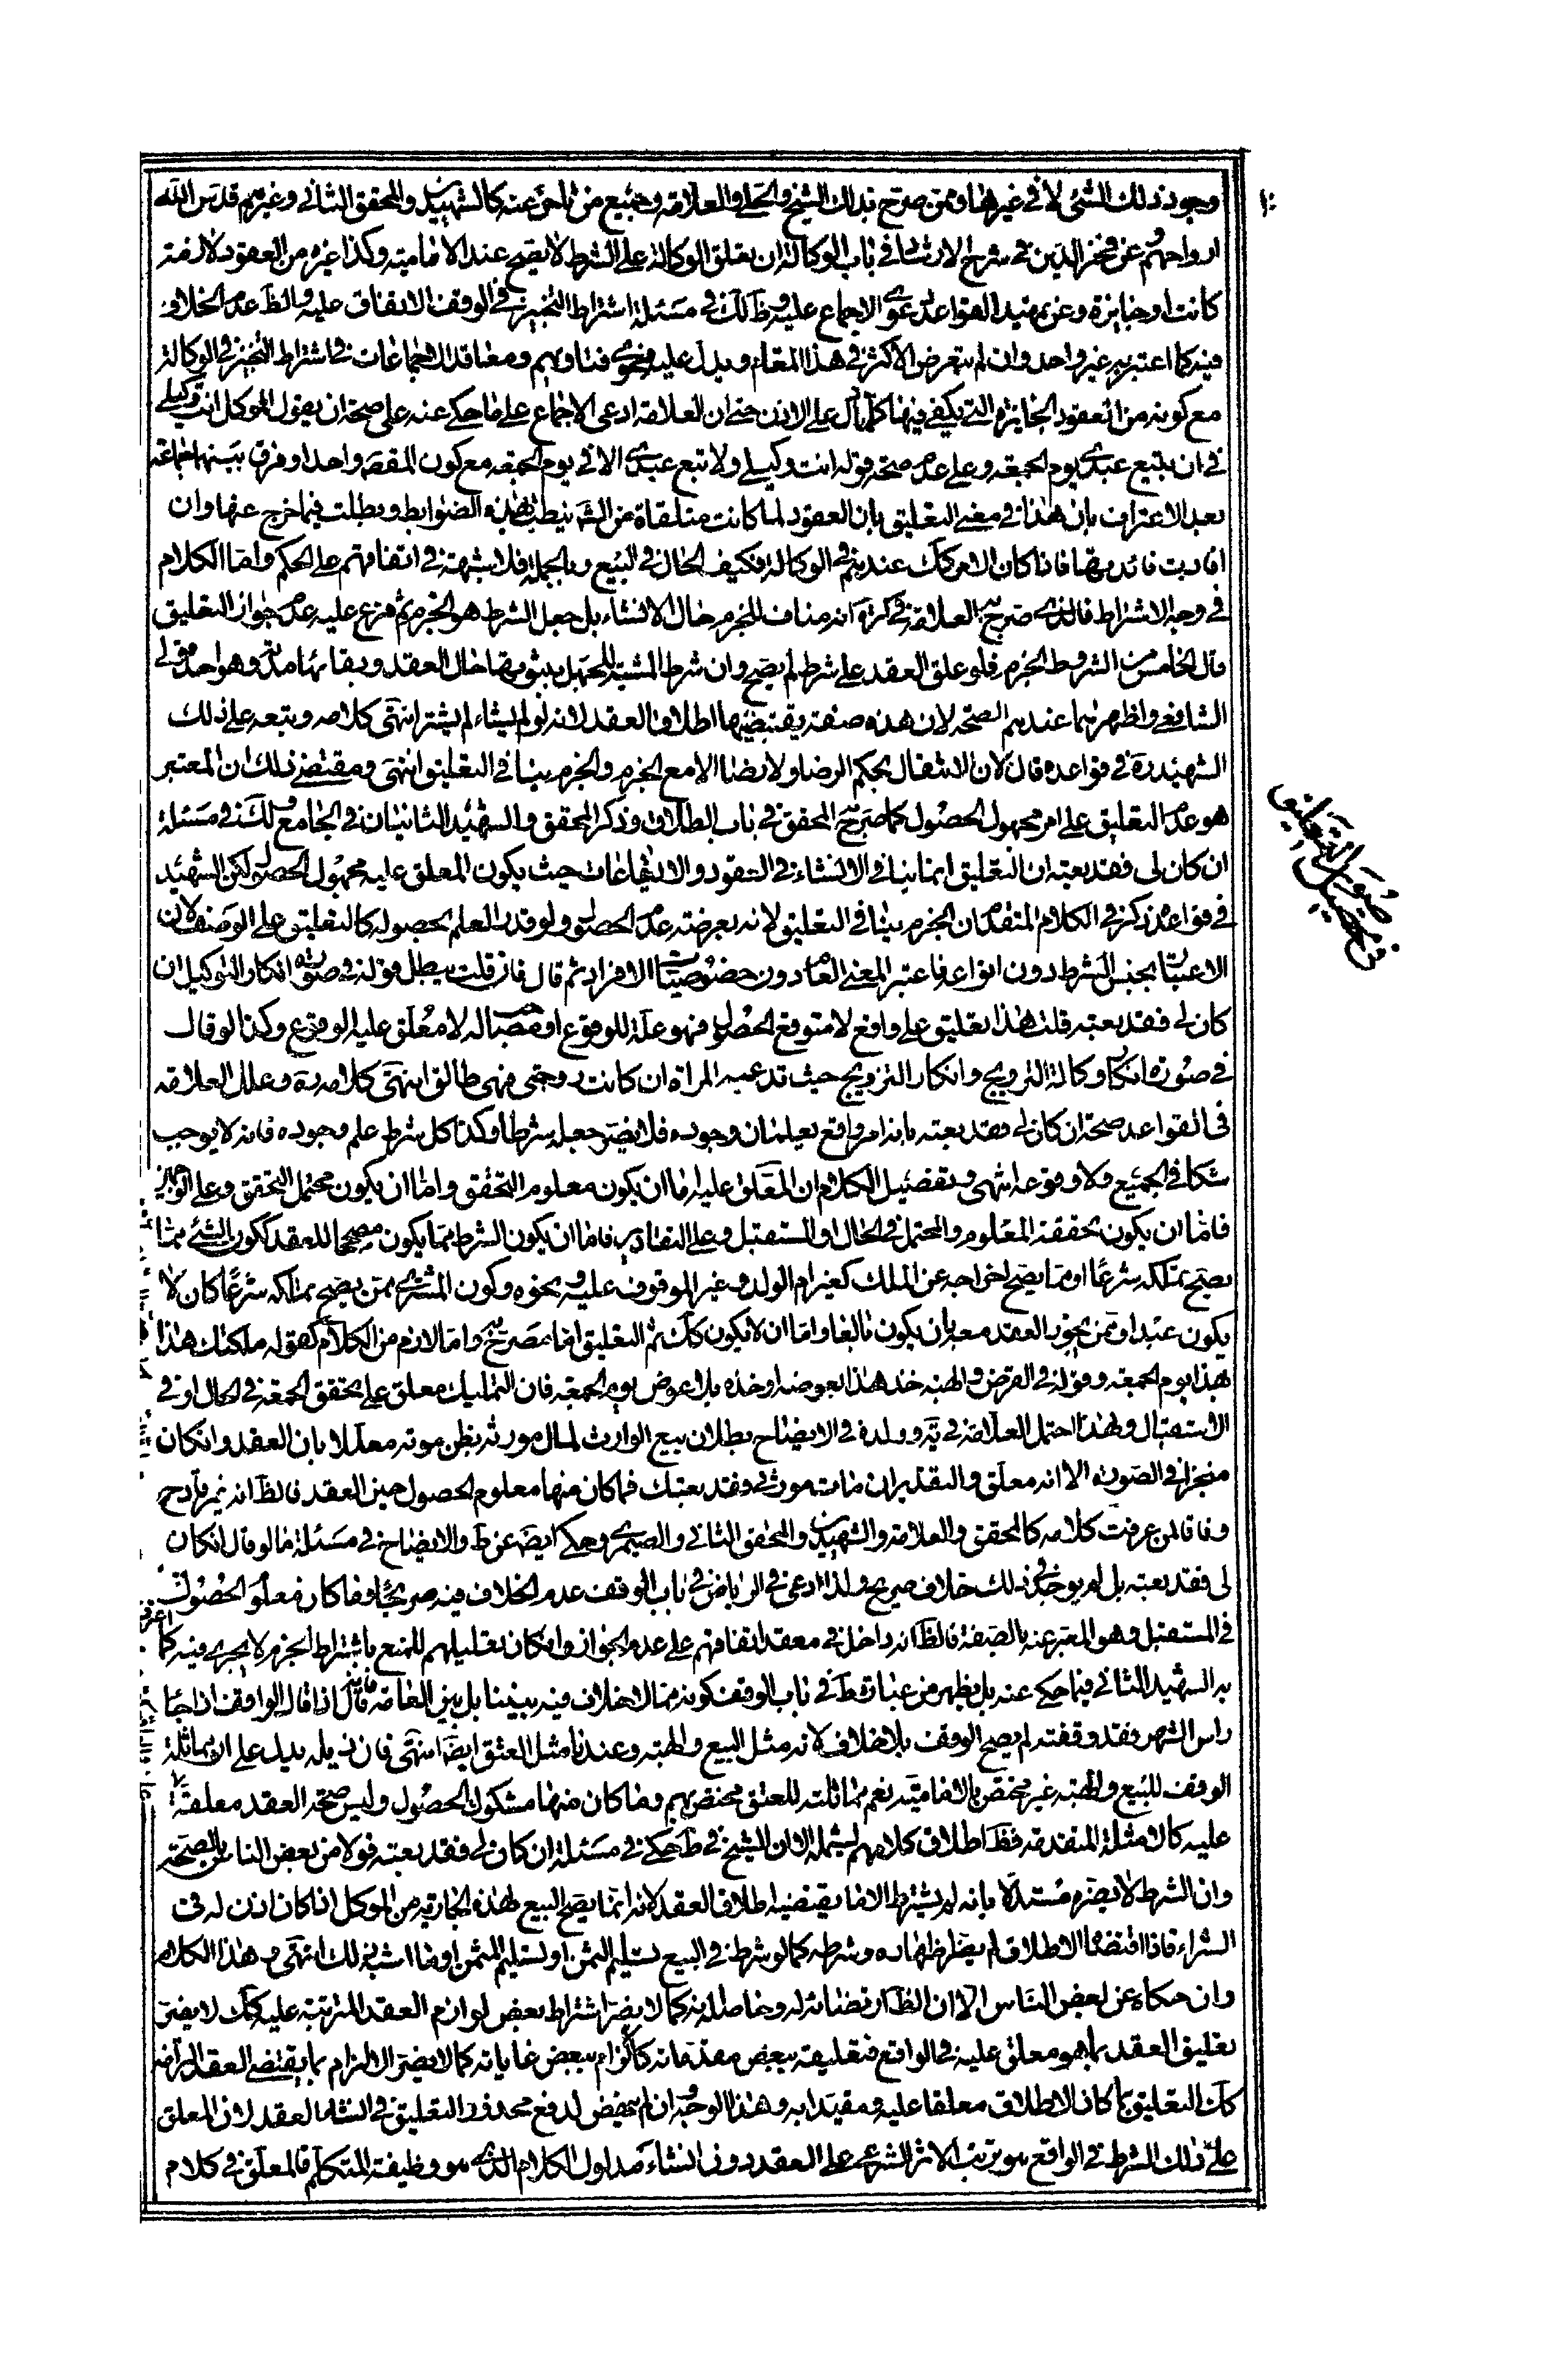 وجود ذلك الشئ لا في غيرها وممن صرح بذلك الشيخ والحلى والعلامة وجميع من تاخر عنه كالشهيدين والمحقق الثانى وغيرهم قدس الله
ارواحهم وعن فخر الدين في شرح الارشاد في باب الوكالة ان تعليق الوكالة على الشرط لا يصح عند الامامية وكذا غيره من العقود لازمة
كانت او جايزة وعن تمهيد القواعد دعوى الاجماع عليه وظ لك في مسئلة اشتراط التنجيز في الوقف الاتفاق عليه والظ عدم الخلاف
فيه كما اعترف به غير واحد وان لم يتعرض الاكثر في هذا المقام ويدل عليه فحوى فتاويهم ومعاقد الاجماعات في اشتراط التنجيز في الوكالة
مع كونه من العقود الجايزة التي يكفي فيها كلما دل على الاذن حتى ان العلامة ادعى الاجماع على ما حكى عنه على صحة ان يقول الموكل انت وكيلى
في ان يبيع عبدى يوم الجمعة وعلى عدم صحة قوله انت وكيلى ولا تبع عبدى الا في يوم الجمعة مع كون المقصو واحدا وفرق بينهما جماعة
بعد الاعتراف بان هذا في معنى التعليق بان العقود لما كانت متلقاة من الشه نيطت بهذه الضوابط وبطلت فيما خرج عنها وان
افادت فائدتها فاذا كان الامر كك عندهم في الوكالة فكيف الحال في البيع وبالجملة فلا شبهة في اتفاقهم على الحكم واما الكلام
في وجه الاشتراط فالذى صرح به العلامة في كرة انه مناف للجزم حال الانشاء بل جعل الشرط هو الجزم ثم فرع عليه عدم جواز التعليق
قال الخامس من الشروط الجزم فلو علق العقد على شرط لم يصح وان شرط المشية للجهل بثبوتها حال العقد وبقائها مدته وهو احد قولى
الشافعي واظهرهما عندهم الصحة لان هذه صفة يقتضيها اطلاق العقد لانه لو لم يشاء لم يشتر انتهى كلامه وتبعه على ذلك
الشهيد ره في قواعده قال لان الانتقال بحكم الرضا ولا رضا الا مع الجزم والجزم ينافي التعليق انتهى ومقتضى ذلك ان المعتبر
هو عدم التعليق على امر مجهول الحصول كما صرح به المحقق في باب الطلاق وذكر المحقق والشهيد الثانيان في الجامع ولك في مسئلة
ان كان لى فقد بعته ان التعليق انما ينافي الانشاء في العقود والايقاعات حيث يكون المعلق عليه مجهول الحصول لكن الشهيد
في قواعده ذكر في الكلام المتقدم ان الجزم ينافي التعليق لانه بعرضة عدم الحصول ولو قدر العلم بحصوله كالتعليق على الوصف لان
الاعتبار بجنس الشرط دون انواعه فاعتبر المعنى العام دون خصوصيات الافراد ثم قال فان قلت يبطل قوله في صورة انكار التوكيل ان
كان لى فقد بعته قلت هذا تعليق على واقع لا متوقع الحصول فهو علة للوقوع او مصاحب له لا معلق عليه الوقوع وكذا لو قال
في صورة انكار وكالة التزويج وانكار التزويج حيث تدعيه المراة ان كانت زوجتى فهى طالق انتهى كلامه ره وعلل العلامة
في القواعد صحة ان كان لى فقد بعته بانه امر واقع يعلمان وجوده فلا يضر جعله شرطا وكذا كل شرط علم وجوده فانه لا يوجب
شكا في البيع ولا وقوعه انتهى وتفصيل الكلام ان المعلق عليه اما ان يكون معلوم التحقق واما ان يكون محتمل التحقق وعلى الوجهين
فاما ان يكون تحققه المعلوم والمحتمل في الحال او المستقبل وعلى التقادير فاما ان يكون الشرط مما يكون مصححا للعقد ككون الشئ مما
يصح تملكه شرعا او مما يصح اخراجه عن الملك كغير ام الولد وغير الموقوف عليه ونحوه وكون المشترى ممن يصح تملكه شرعا كان لا
يكون عبدا او ممن يجوز العقد معه بان يكون بالغا واما ان لا يكون كك ثم التعليق اما مصرح به واما لازم من الكلام كقوله ملكتك هذا
بهذا يوم الجمعة وقوله في القرض والهبة خذ هذا بعوضه او خذه بلا عوض يوم الجمعة فان التمليك معلق على تحقق الجمعة في الحال او في
الاستقبال ولهذا احتمل العلامة في ية وولده في الايضاح بطلان بيع الوارث لمال مورثه بظن موته معللا بان العقد وان كان
منجزا في الصورة الا انه معلق والتقدير ان مات مورثى فقد بعتك فما كان منها معلوم الحصول حين العقد فالظ انه غير قادح
وفاقا لمن عرفت كلامه كالمحقق والعلامة والشهيدين والمحقق الثانى والصيمرى وحكى ايضا عن ط والايضاح في مسئلة ما لو قال ان كان
لى فقد بعته بل لم يوجد في ذلك خلاف صريح ولذا ادعى في الرياض في باب الوقف عدم الخلاف فيه صريحا وما كان معلوم الحصول
في المستقبل وهو المعبر عنه بالصفة فالظ انه داخل في معقد اتفاقهم على عدم الجواز وان كان تعليلهم للمنع باشتراط الجزم لا يجرى فيه كما اعترف
به الشهيد الثانى فيما حكى عنه بل يظهر من عبارة ط في باب الوقف كونه مما لا خلاف فيه بيننا بل بين العامة فانه قال اذا قال الواقف اذا جاء
راس الشهر فقد وقفته لم يصح الوقف بلا خلاف لانه مثل البيع والهبة وعندنا مثل العتق ايضا انتهى فان ذيله يدل على ان مماثلة
الوقف للبيع والهبة غير مختص بالامامية نعم مماثلته للعتق مختص بهم وما كان منها مشكوك الحصول وليس صحة العقد معلقة
عليه كالامثلة المتقدمة فظ اطلاق كلامهم يشمله الا ان الشيخ في ط حكى في مسئلة ان كان لى فقد بعته قولا من بعض الناس بالصحة
وان الشرط لا يضره مستدلا بانه لم يشترط الا ما يقتضيه اطلاق العقد لانه انما يصح البيع لهذه الجارية من الموكل اذا كان اذن له في
الشراء فاذا اقتضاه الاطلاق لم يضر اظهاره وشرطه كما لو شرط في البيع تسليم الثمن او تسليم المثمن او ما اشبه ذلك انتهى وهذا الكلام
وان حكاه عن بعض الناس الا ان الظ ارتضائه له وحاصله انه كما لا يضر اشتراط بعض لوازم العقد المترتبة عليه كك لا يضر
تعليق العقد بما هو معلق عليه في الواقع فتعليقه ببعض مقدماته كالالزام ببعض غاياته كما لا يضر الالزام بما يقتضى العقد التزامه
كك التعليق بما كان الاطلاق معلقا عليه ومقيدا به وهذا الوجه وان لم ينهض لدفع محذور التعليق في انشاء العقد لان المعلق
على ذلك الشرط في الواقع هو ترتب الاثر الشرعى على العقد دون انشاء مدلول الكلام الذى هو وظيفة المتكلم فالمعلق في كلام
في تفصيل صور التعليق